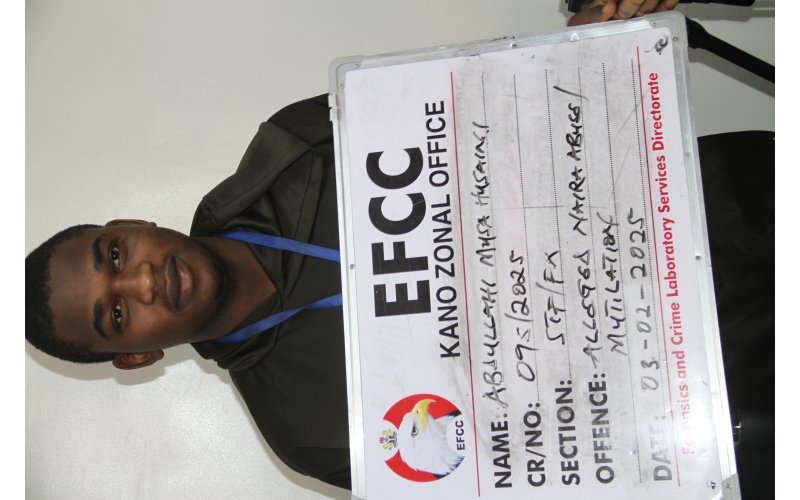 EFCC
KANO ZONAL OFFICE
EFCC
NAME: ABDULLAHI MUSA HUSAINI
CR/NO: 095/2025
SECTION: STF/FX
OFFENCE: ALLEGED NAIRA ABUSE/
MUTILATION
DATE: 03-02-2025
Forensics and Crime Laboratory Services Directorate